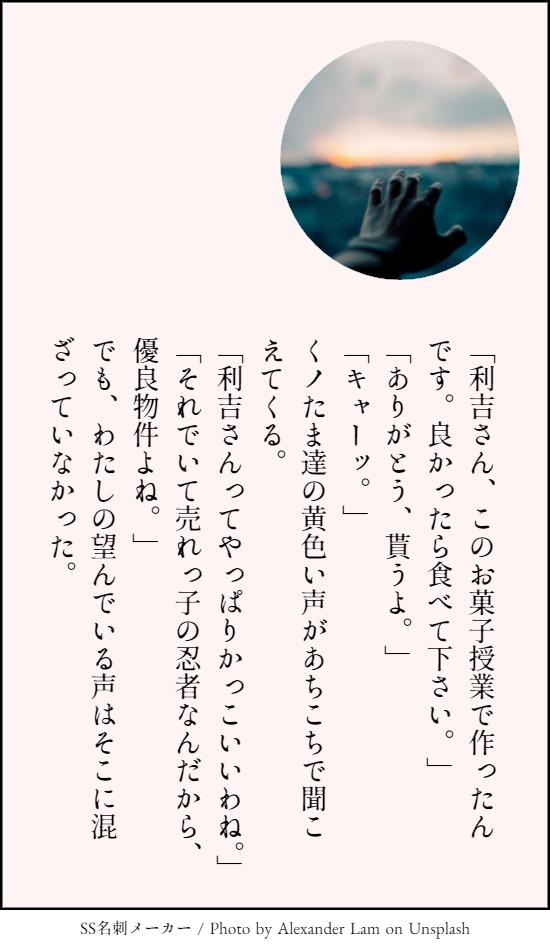 「利吉さん、このお菓子授業で作ったん
です。良かったら食べて下さい。」
「ありがとう、貰うよ。」
「キャーッ。」
くノたま達の黄色い声があちこちで聞こ
えてくる。
「利吉さんってやっぱりかっこいいわね。」
「それでいて売れっ子の忍者なんだから、
優良物件よね。」
でも、わたしの望んでいる声はそこに混
ざっていなかった。
SS名刺メーカー / Photo by Alexander Lam on Unsplash